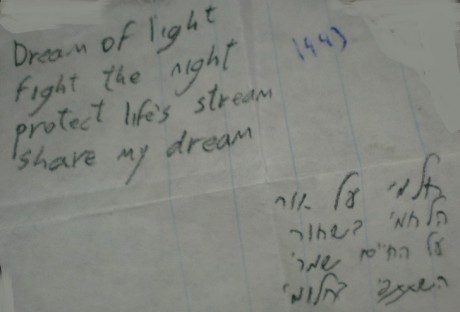 Dream of light
fight the night
protect life's stream
share my dream
חלמי על אור
הלחמי בשחור
על החיים שמרי
בחלומי